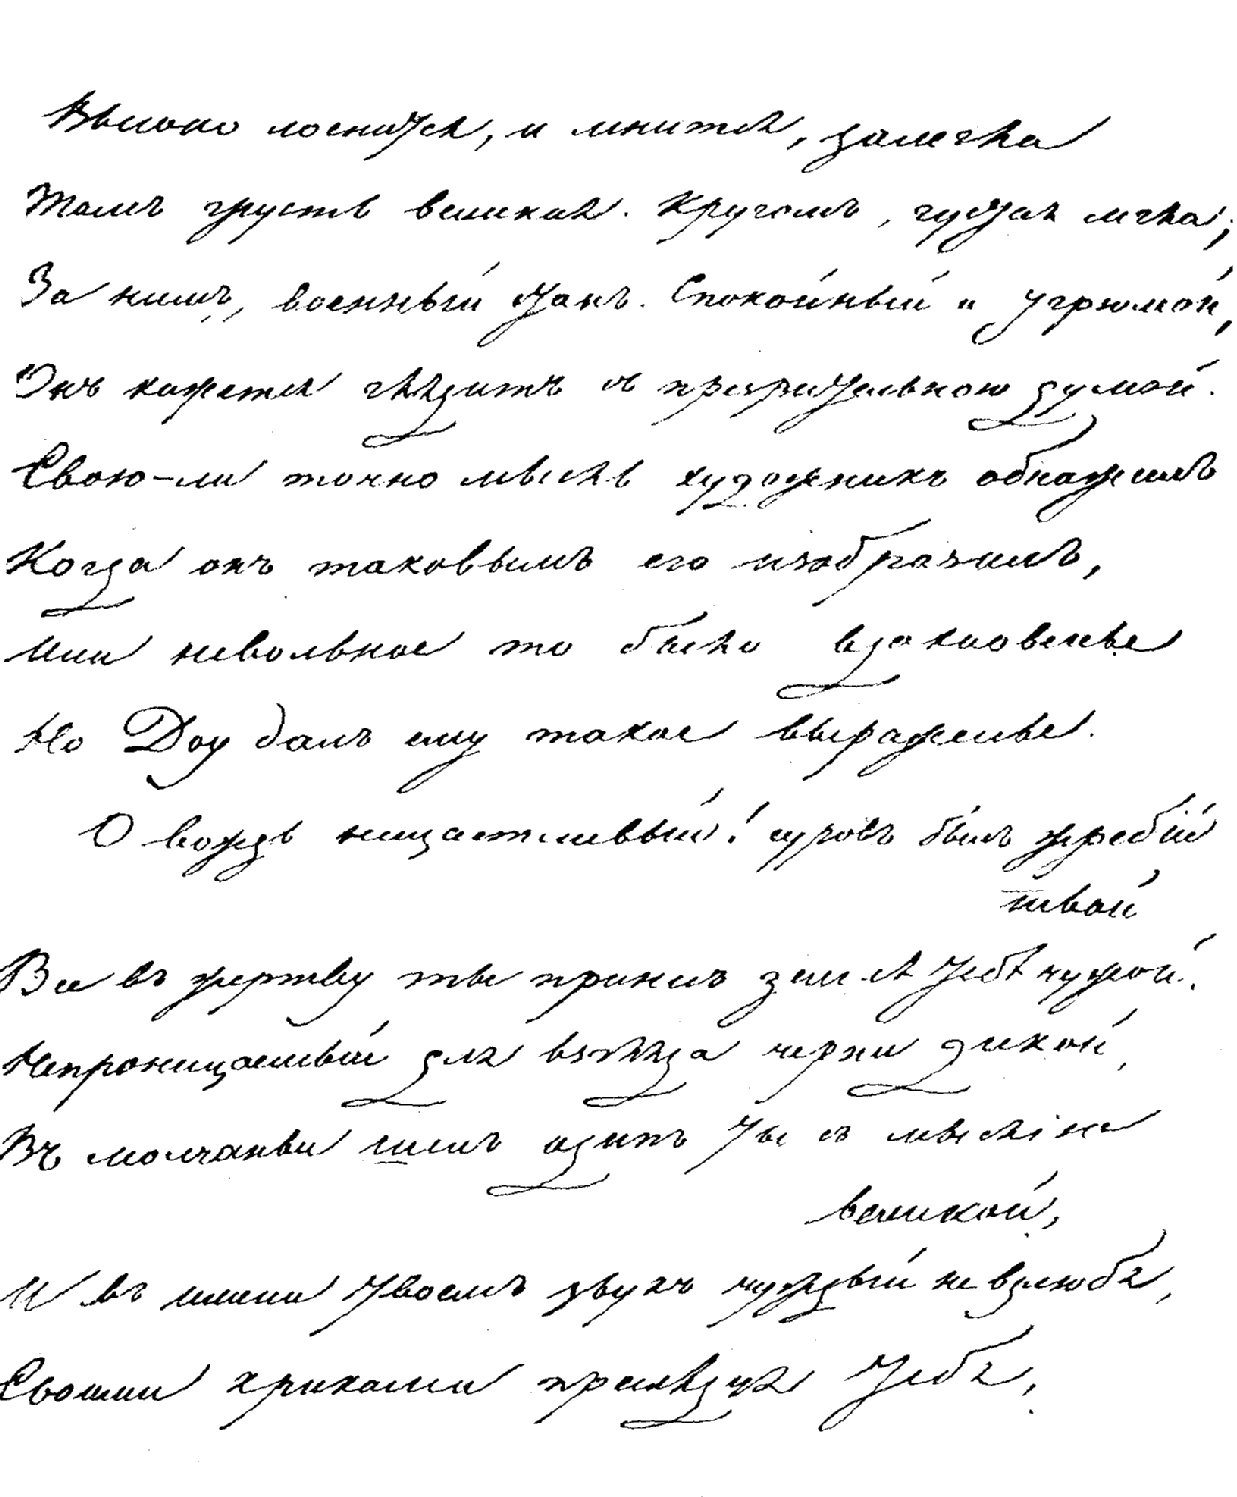 Высоко лоснится, и мнится, залегла
Тамъ грусть великая. Кругомъ, густая мгла;
За нимъ, военный станъ. Спокойный и угрюмой,
Онъ кажется глядитъ съ презрительною думой.
Свою-ли точно мысль художникъ обнажилъ
Когда онъ таковымъ его изобразилъ,
Или невольное то было вдохновенье
Но Доу далъ ему такое выраженье.
О вождь нещастливый! суровъ былъ жребій
твой
Все въ жертву ты принесъ землѣ тебѣ чужой.
Непроницаемый для взгляда черни дикой,
Въ молчаньи шелъ одинъ ты съ мыслію
великой,
И въ имени твоемъ звукъ чуждый не взлюбя,
Своими криками преслѣдуя тебя,